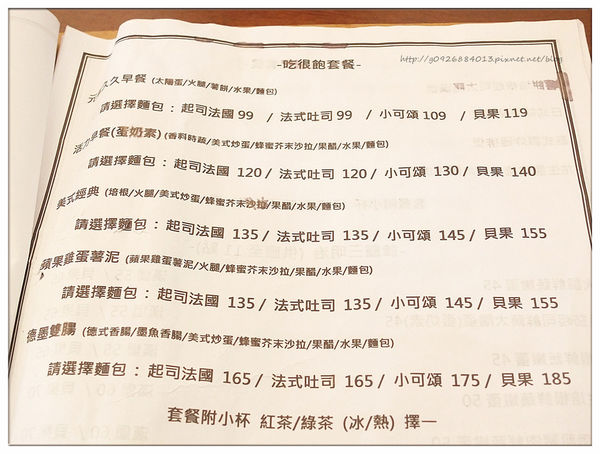 http://g0926884013.pixnet.net/blog
-吃很飽套餐-
久久早餐 (太陽蛋/火腿/薯餅/水果/麵包)
請選擇麵包：起司法國 99 / 法式吐司 99 / 小可頌 109 / 貝果 119
活力早餐(蛋奶素) (香料時蔬/美式炒蛋/蜂蜜芥末沙拉/果醋/水果/麵包)
請選擇麵包：起司法國 120 / 法式吐司 120 / 小可頌 130 / 貝果 140
美式經典 (培根/火腿/美式炒蛋/蜂蜜芥末沙拉/果醋/水果/麵包)
請選擇麵包：起司法國 135 / 法式吐司 135 / 小可頌 145 / 貝果 155
蘋果雞蛋薯泥 (蘋果雞蛋薯泥/火腿/蜂蜜芥末沙拉/果醋/水果/麵包)
請選擇麵包：起司法國 135 / 法式吐司 135 / 小可頌 145 / 貝果 155
德墨雙腸 (德式香腸/墨魚香腸/美式炒蛋/蜂蜜芥末沙拉/果醋/水果/麵包)
請選擇麵包：起司法國 165 / 法式吐司 165 / 小可頌 175 / 貝果 185
套餐附小杯 紅茶/綠茶 (冰/熱) 擇一